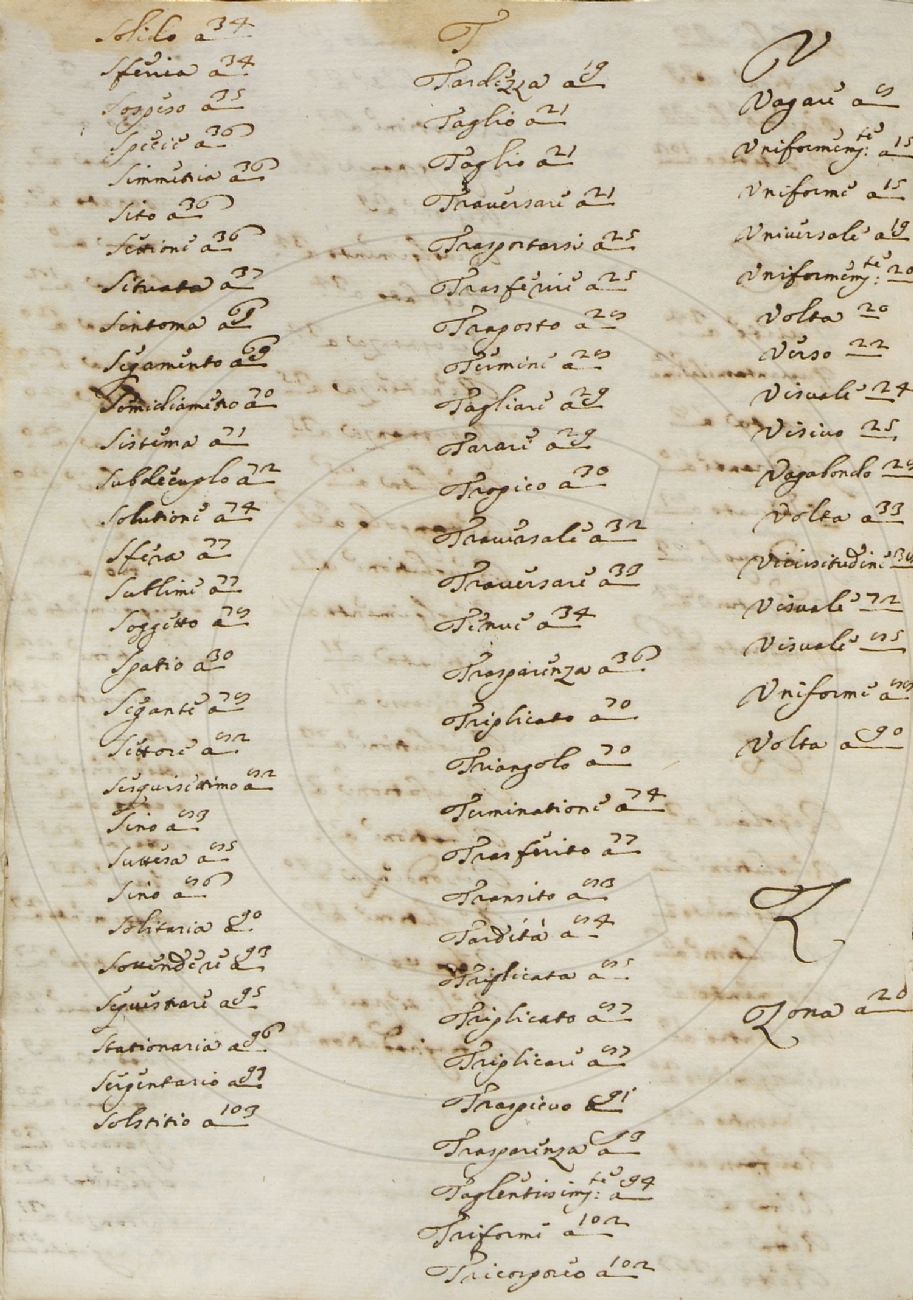 Solido a 34
Sferica a 34
Sospeso a 35
Specie a 36
Simmetria a 36
Sito a 36
Settione a 36
Situata a 37
Sintoma a 69
Segamento a 69
Semidiametro a 70
Sistema a 71
Subdecuplo a 72
Solutione a 74
Sfera a 77
Sublime a 77
Soggetto a 78
Spatio a 30
Segante a 78
Settore a 82
Sesquisettimo a 82
Sino a 83
Suttesa a 85
Sino a 86
Solitaria a 90
Sottendere a 93
Sequestrare a 95
Stationaria a 96
Sergentario a 97
Solstitio a 103
T
Tardezza a 19
Taglio a 21
Taglio a 21
Traversare a 21
Trasportarsi a 25
Trasferire a 25
Trasposto a 28
Termine a 28
Tagliare a 29
Tarare a 29
Tropico a 30
Traversale a 32
Traversare a 33
Tenue a 34
Trasparenza a 36
Triplicato a 70
Triangolo a 70
Terminatione a 74
Trasferito a 77
Transito a 83
Tardità a 84
Triplicata a 85
Triplicato a 87
Triplicare a 87
Traspicuo a 91
Trasparenza a 93
Taglentissimte: a 94
Triforme a 102
Tricorporeo a 102
V
Vagare a 8
Vniformemte: a 15
Vniforme a 15
Vniversale a 19
Vniformemte: 20
Volta 20
Verso 22
Visuale 24
Visivo 25
Vagabondo 28
Volta a 33
Vicissitudine 36
Visuale 72
Visuale 85
Vniforme a 88
Volta a 90
Z
Zona a 20